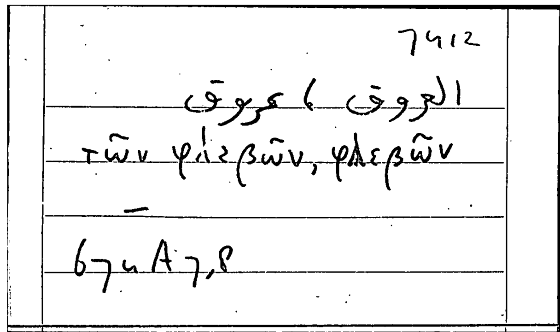 7412
العروق ، عروق
τῶν φλεβῶν, φλεβῶν
—
674 A 7,8